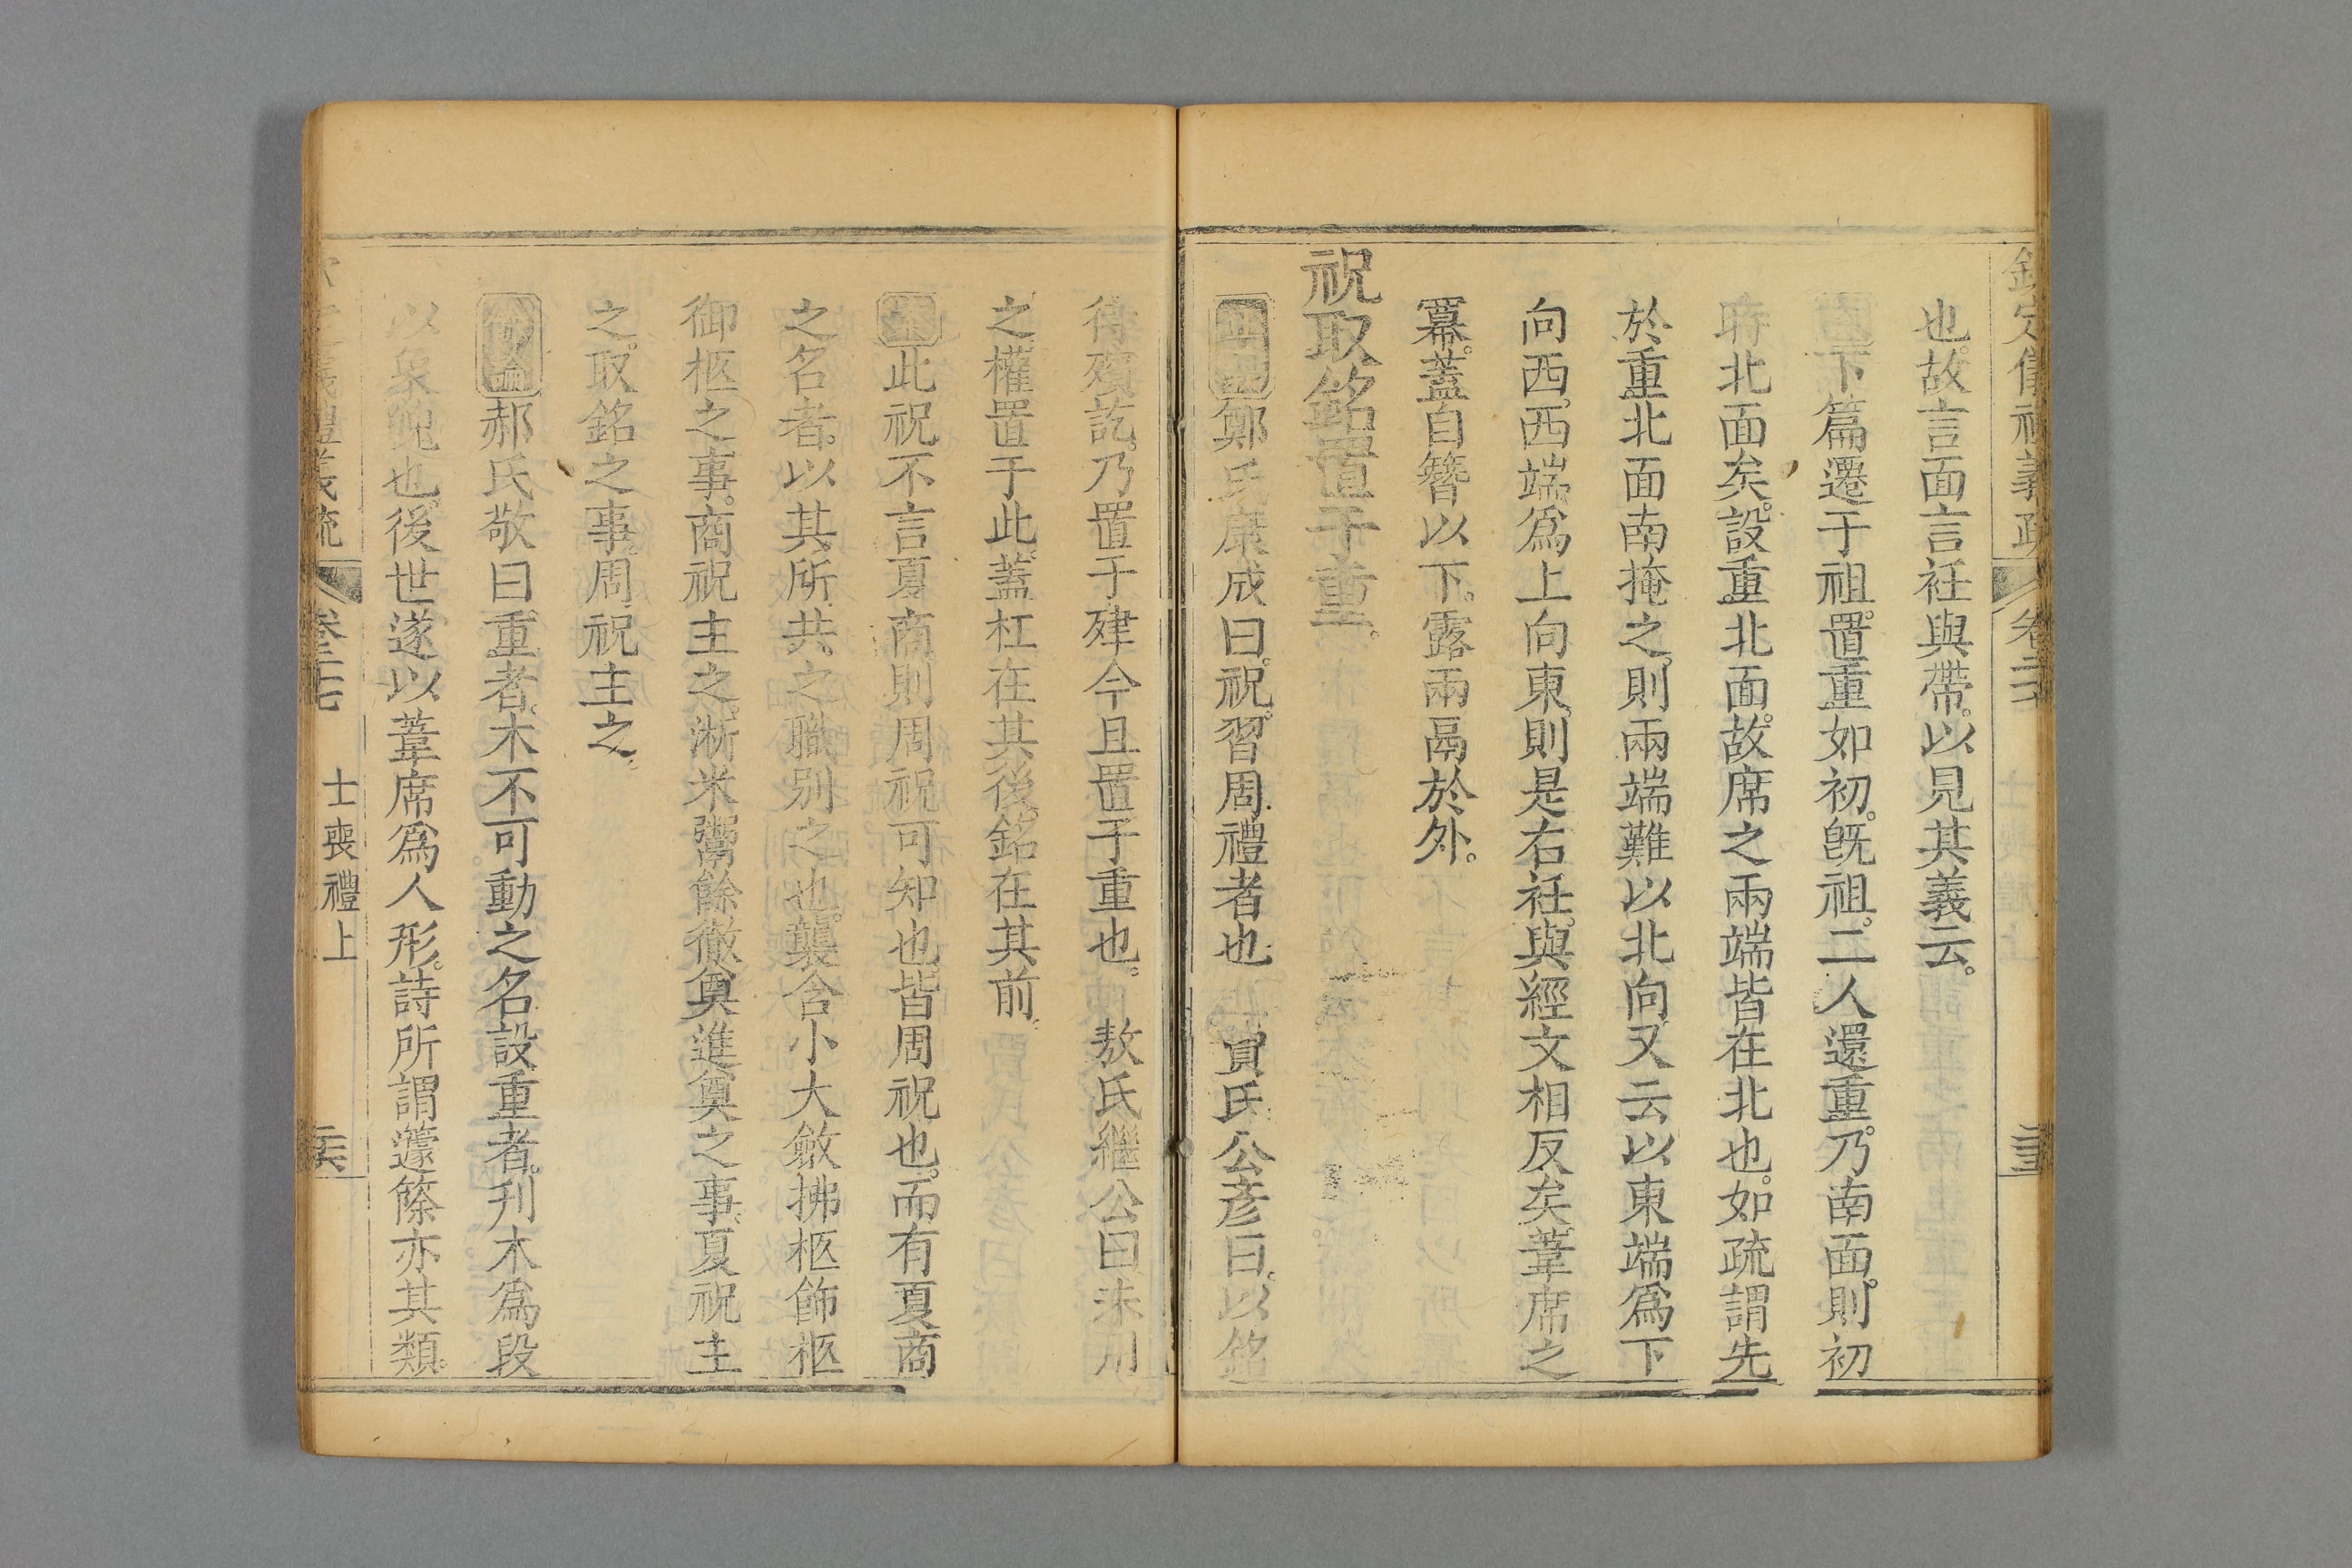 也。故言面言衽與帶。以見其義云。
下篇遷于祖。置重如初。旣祖。二人還重。乃南面。則初
時北面矣。設重北面。故席之兩端皆在北也。如疏謂先
於重北面南掩之。則兩端難以北向。又云以東端爲下
向西。西端爲上向東。則是右衽。與經文相反矣。葦席之
冪。蓋自簪以下。露兩鬲於外。
祝取銘置于重。
鄭氏康成曰。祝。習周禮者也 賈氏公彥曰。以銘
殯訖。乃置于肂。今且置于重也。 敖氏繼公曰未用
之權置于此。蓋杠在其後。銘在其前。
案此祝不言夏商。則周祝可知也。皆周祝也。而有夏商
之名者。以其所共之職別之也。襲含小大斂拂柩飾柩
御柩之事。商祝主之。淅米鬻餘徹奠進奠之事。夏祝主
之。取銘之事。周祝主之。
郝氏敬曰重者。木不可動之名設重者。刋木爲段
以象也。後世遂以葦席爲人形。詩所謂蘧篨亦其類。
士喪禮上